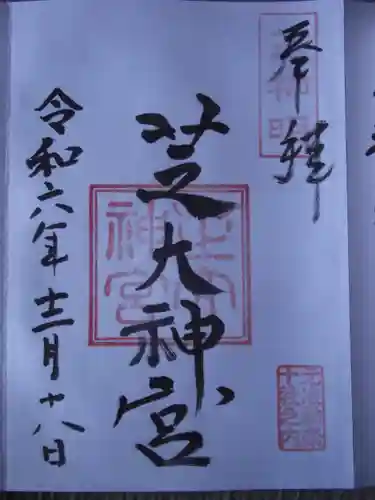 奉拝
芝大神宮
令和六年十二月十八日